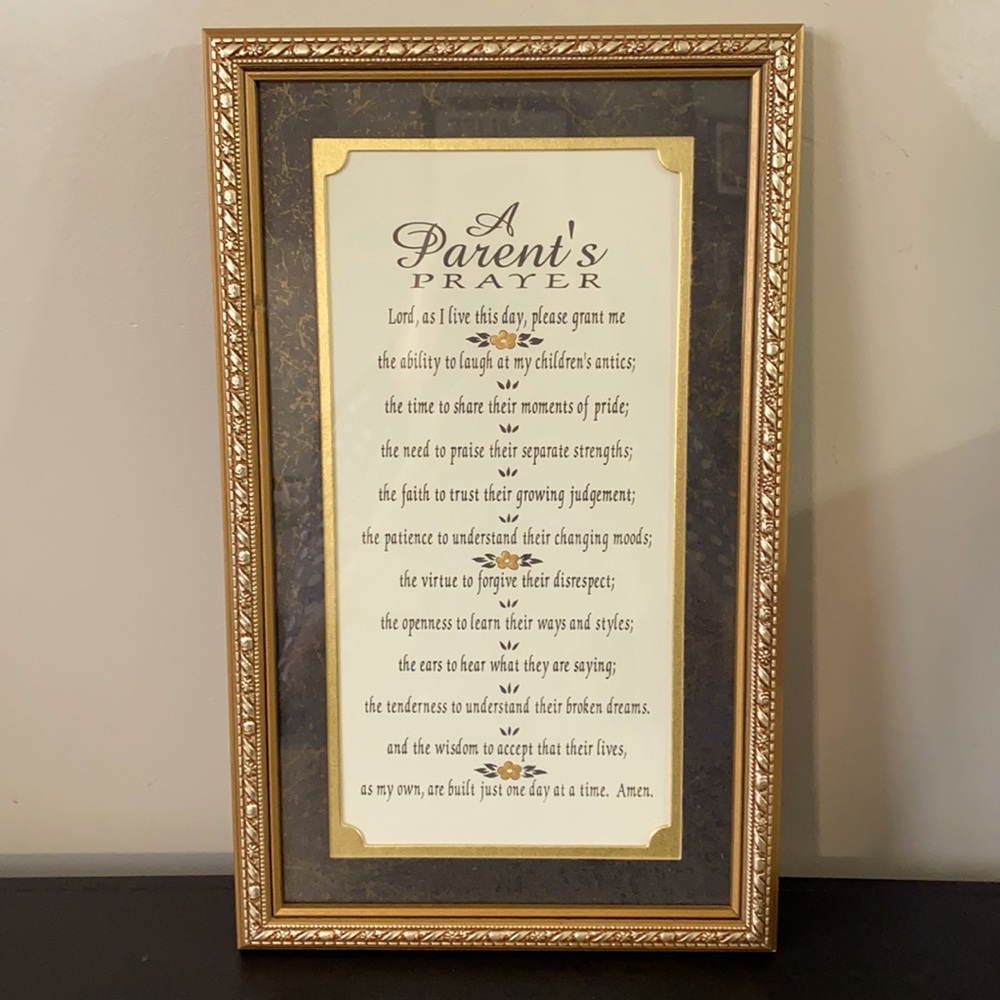 A
Parent's
PRAYER
Lord, as I live this day, please grant me
the ability to laugh at my children's antics;
the time to share their moments of pride;
the need to praise their separate strengths;
the faith to trust their growing judgement;
the patience to understand their changing moods;
the virtue to forgive their disrespect;
the openness to learn their ways and styles;
the ears to hear what they are saying;
the tenderness to understand their broken dreams.
and the wisdom to accept that their lives,
as my own, are built just one day at a time. Amen.